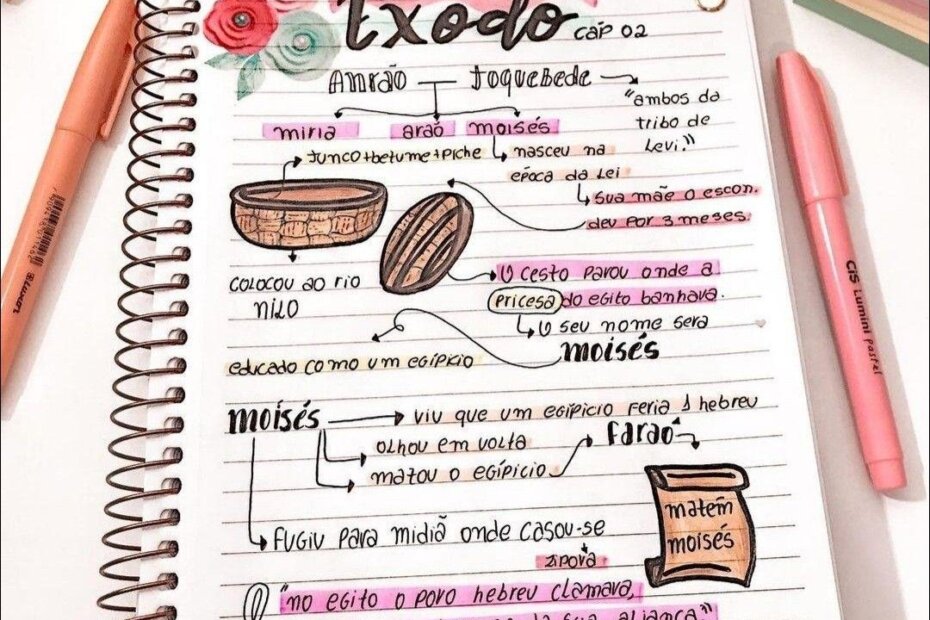 Exodo cap 02
Anrão — Joquebede
"ambos da
tribo de
Levi."
miria arão moisés
Junco+betume+piche
nasceu na
epoca da Lei
Sua mãe o escon.
deu por 3 meses.
colocou ao rio
nilo
O cesto parou onde a
pricesa do egito banhava.
O seu nome sera
moisés
educado como um egípicio
moisés
viu que um egípicio feria 1 hebreu
olhou em volta
matou o egípicio
Farao
matem
moisés
Fugiu para midiã onde casou-se
zipora
"no egito o povo hebreu clamava,
sua aliança."
CiS Lumini Pastel